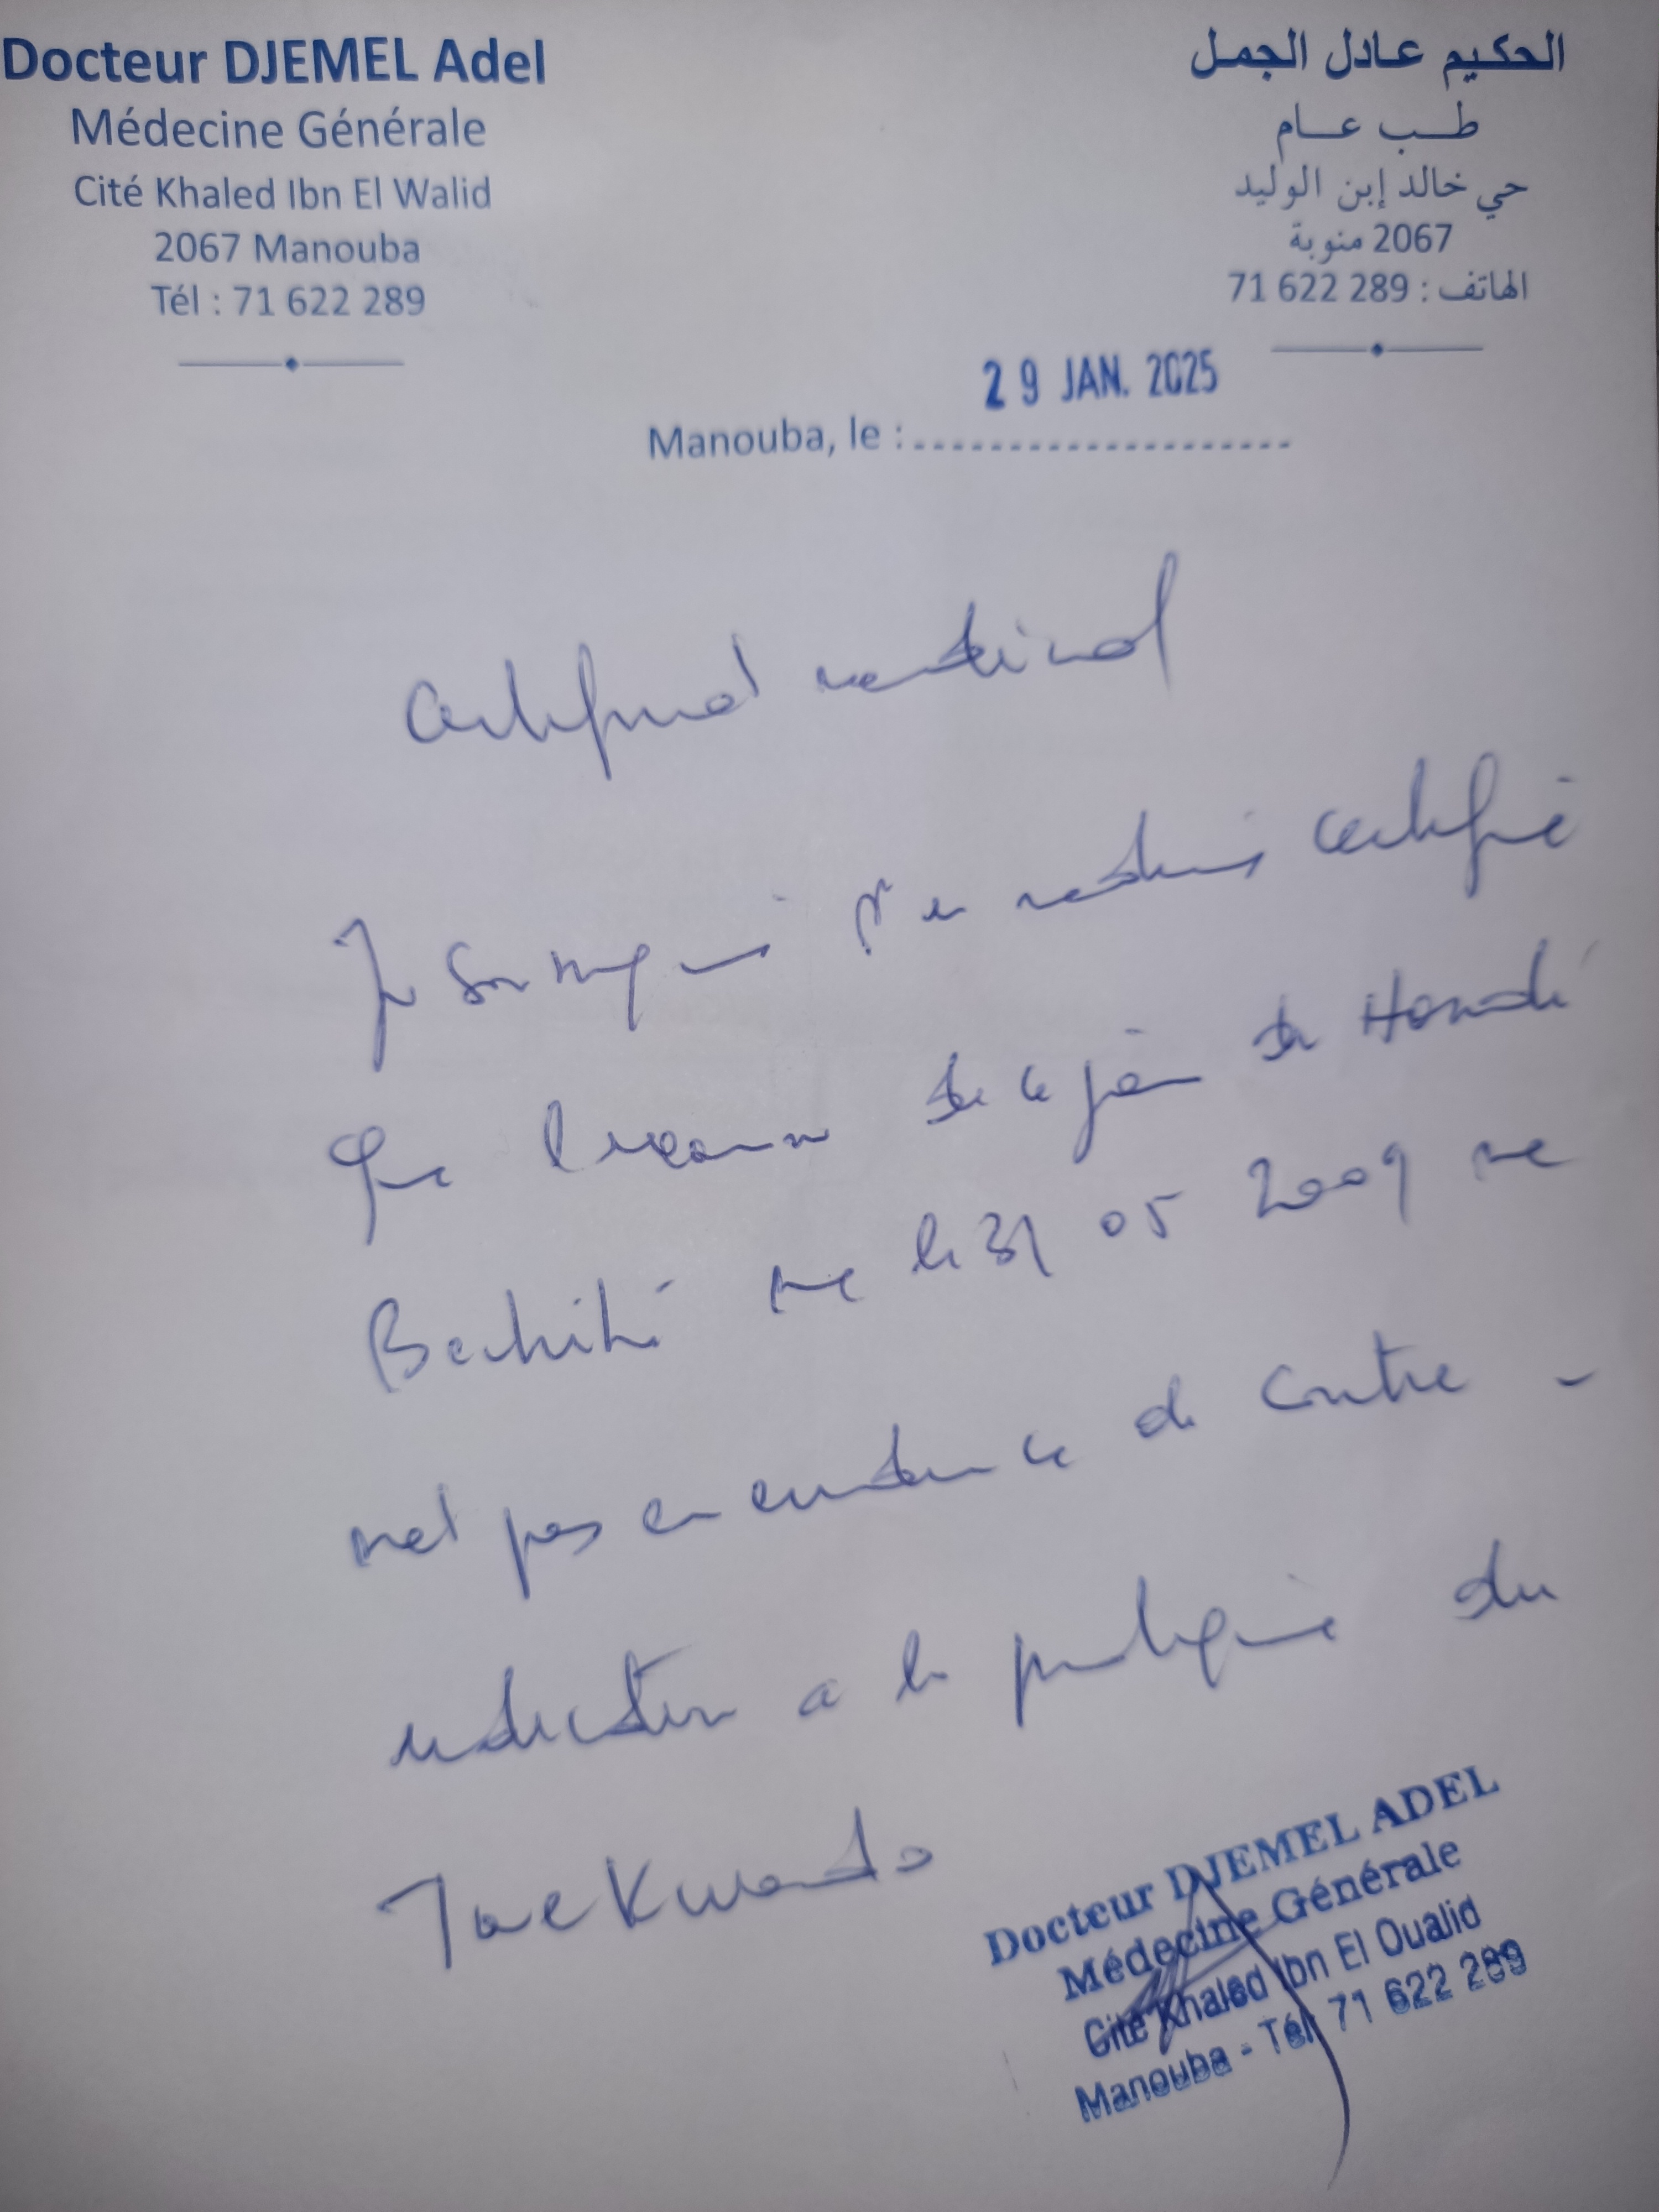 Docteur DJEMEL Adel
Médecine Générale
Cité Khaled Ibn El Walid
2067 Manouba
Tél : 71 622 289
الحكيم عادل الجمل
طب عام
حي خالد إبن الوليد
2067 منوبة
الهاتف : 71 622 289
29 JAN. 2025
Manouba, le :
Certificat médical
Je soussigné Dr en médecine certifie
que l'examen de ce jour de
né le 31 05 2009 ne
met pas en évidence de contre -
indication a la pratique du
Taekwondo
Docteur DJEMEL ADEL
Médecine Générale
Cité Khaled Ibn El Oualid
Manouba - Tél 71 622 289